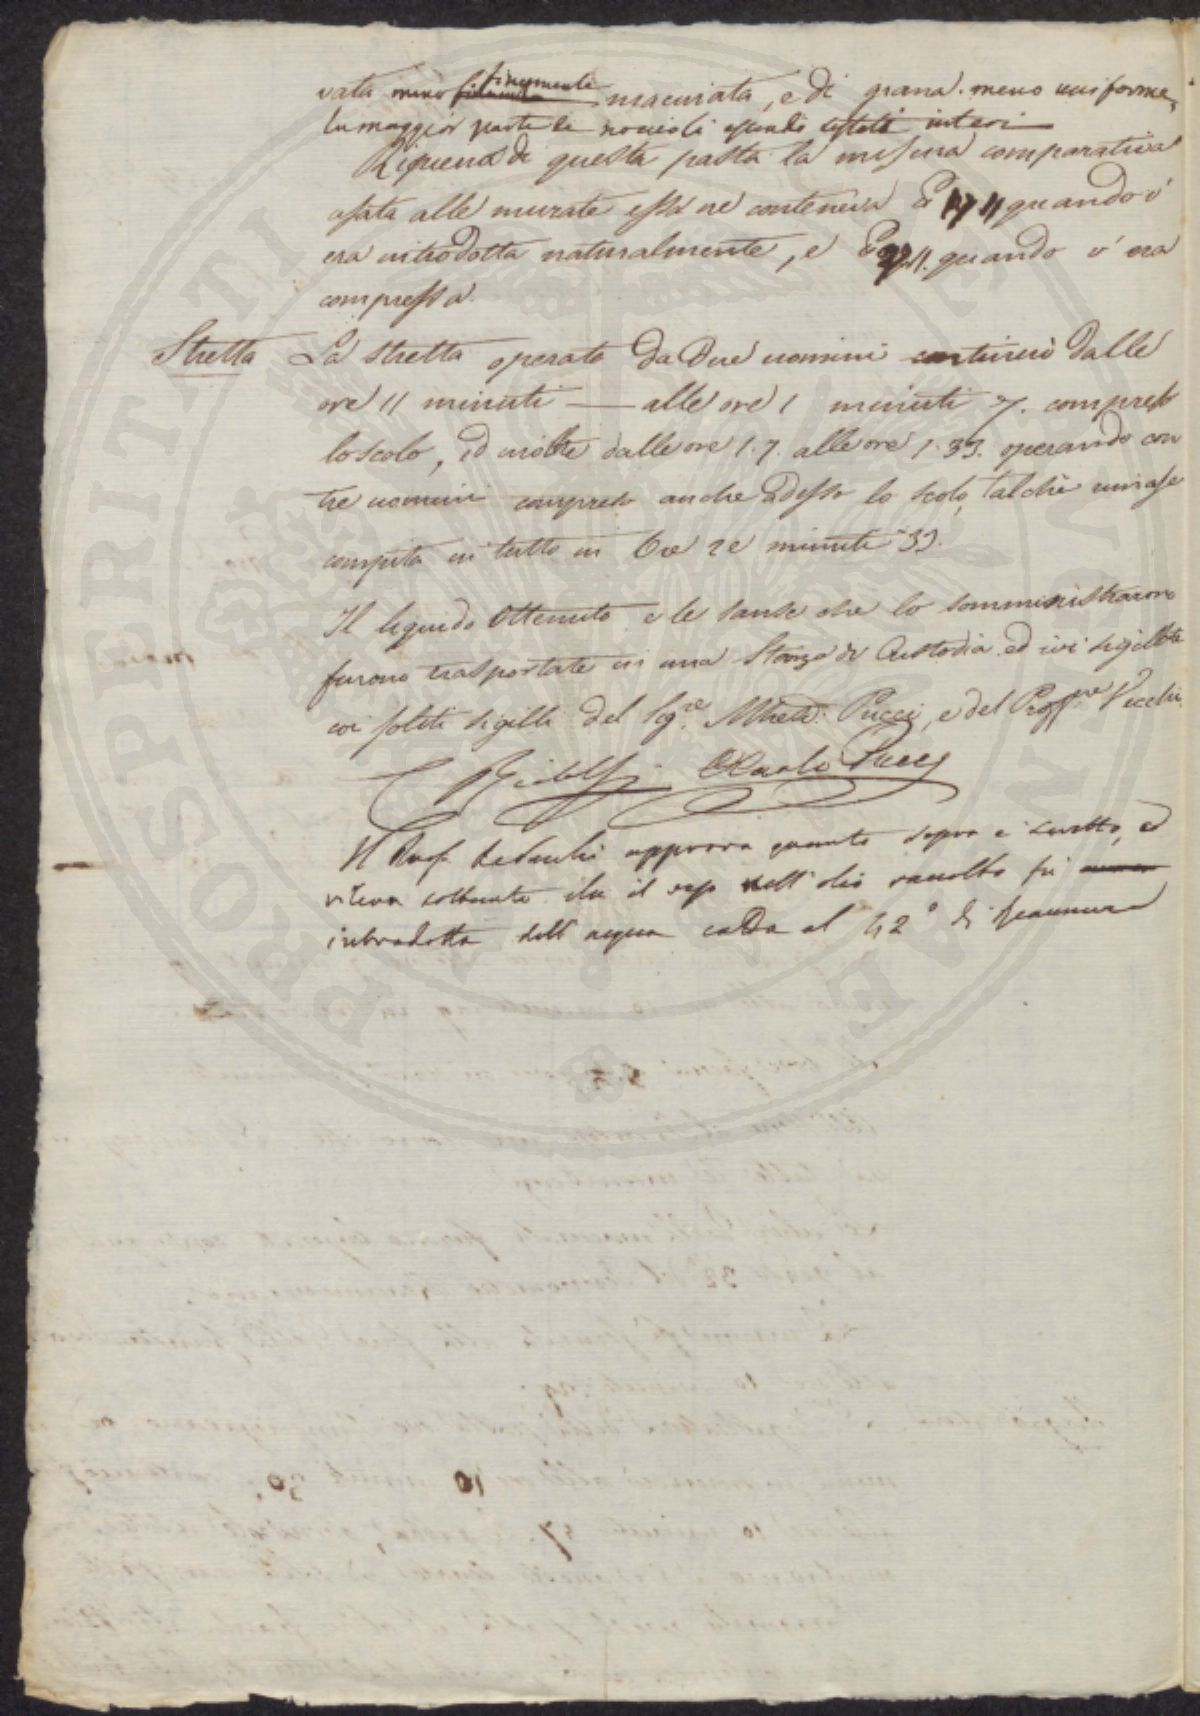 vata meno finamente macinata, e di grana meno uniforme,
la maggior parte de noccioli essendo restati interi
Ripiena di questa pasta la misura comparativa
usata alle murate essa ne conteneva quando v'
era introdotta naturalmente, e quando v'era
compressa.
Stretta La stretta operata da Due uomini continuò dalle
ore 11 minuti — alle ore 1 minuti 7. compreso
lo scolo, ed inoltre dalle ore 1.7. alle ore 1.33. operando con
tre uomini compreso anche adesso lo scolo, talchè rimase
compita in tutto in Ore 2 e minuti 33.
Il liquido Ottenuto e le sanse che lo somministrarono
furono trasportate in una Stanza di Custodia ed ivi sigillate
coi soliti sigilli del Sigre. Pucci, e del Proffre.
C Ridolfi Carlo Pucci
Il Prof. approva quanto sopra è scritto, ed
rileva soltanto che il dell'olio raccolto fu
introdotta dell'acqua calda al 42° di Reaumur